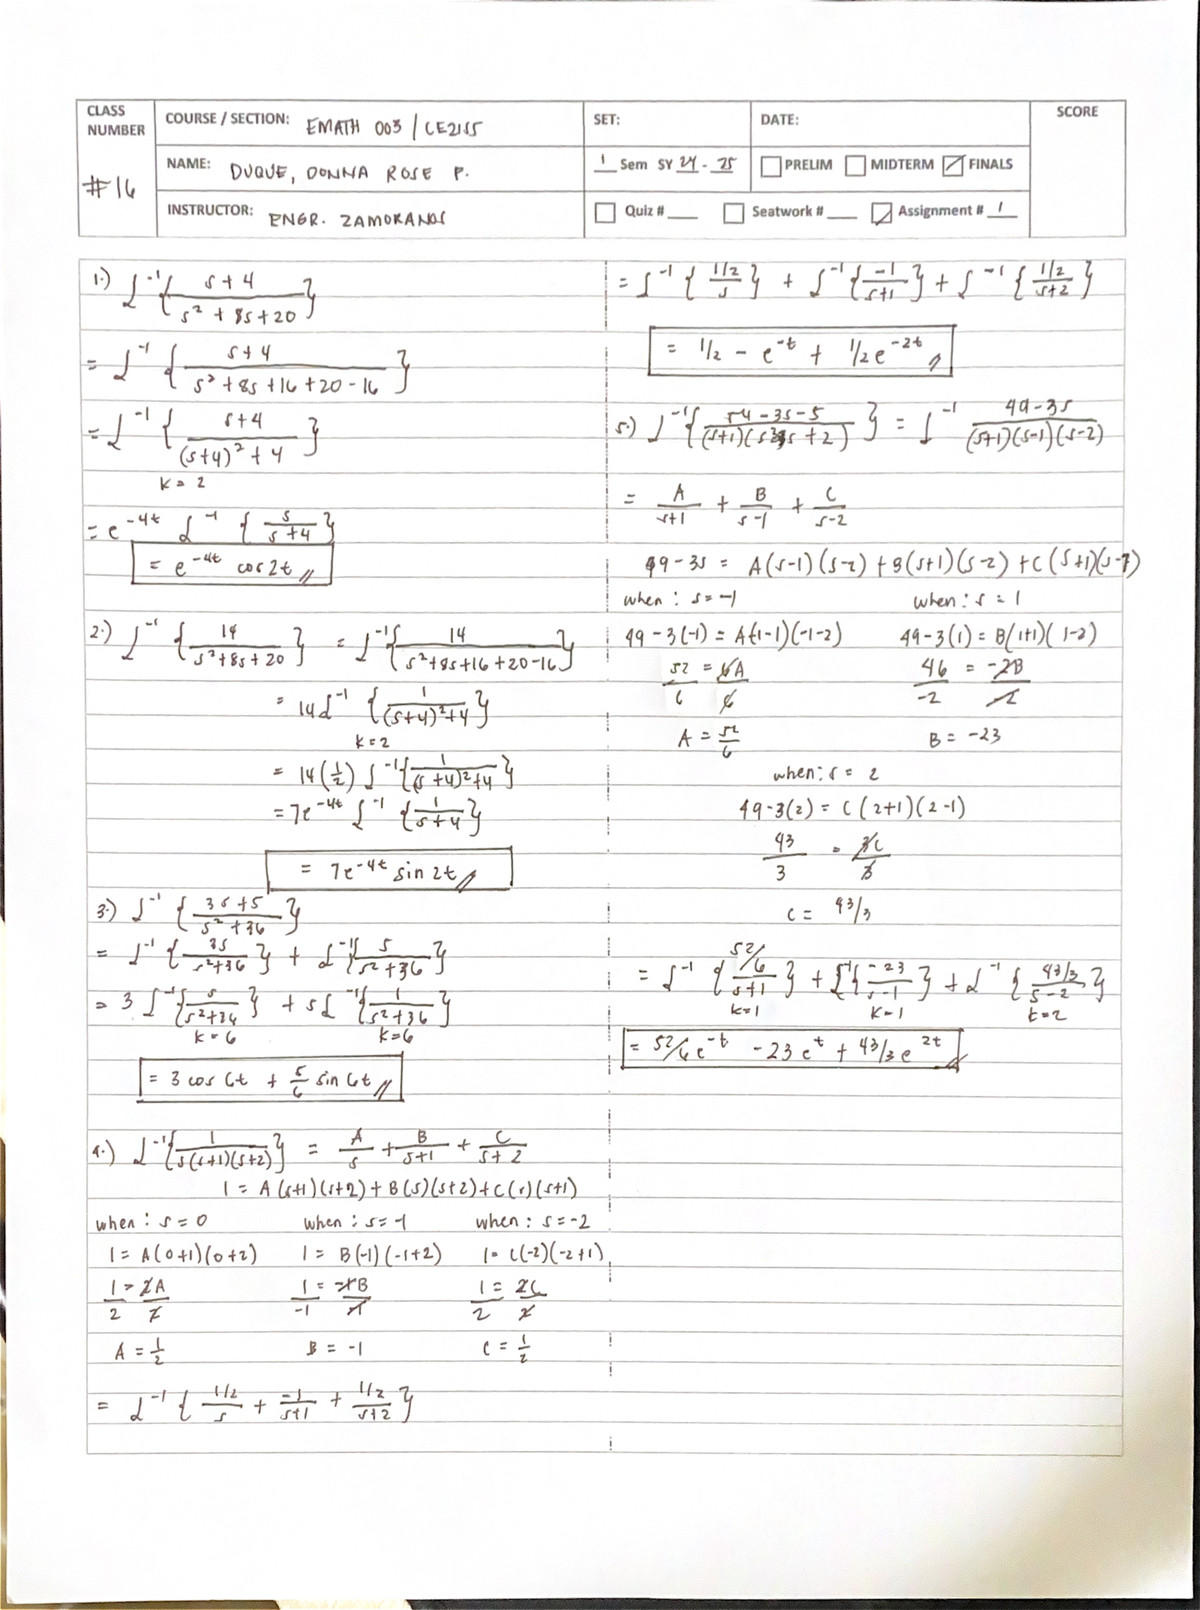 CLASS NUMBER
#16
COURSE / SECTION: EMATH 003 / CE21S5
NAME: DUQUE, DONNA ROSE P.
INSTRUCTOR: ENGR. ZAMORANOS
SET:
1 Sem SY 24 - 25
DATE:
PRELIM MIDTERM FINALS
Quiz # Seatwork # Assignment # 1
SCORE
1.) L⁻¹{ (s+4)/(s² + 8s + 20) }
= L⁻¹{ (s+4)/(s² + 8s + 16 + 20 - 16) }
= L⁻¹{ (s+4)/((s+4)² + 4) }
k = 2
= e^(-4t) L⁻¹{ s/(s+4) }
= e^(-4t) cos 2t //
2.) L⁻¹{ 14/(s² + 8s + 20) } = L⁻¹{ 14/(s² + 8s + 16 + 20 - 16) }
= 14 L⁻¹{ 1/((s+4)² + 4) }
k = 2
= 14(1/2) L⁻¹{ 1/((s+4)² + 4) }
= 7e^(-4t) L⁻¹{ 1/(s+4) }
= 7e^(-4t) sin 2t //
3.) L⁻¹{ (3s+5)/(s² + 36) }
= L⁻¹{ 3s/(s²+36) } + L⁻¹{ 5/(s²+36) }
= 3 L⁻¹{ s/(s²+36) } + 5 L⁻¹{ 1/(s²+36) }
k = 6 k = 6
= 3 cos 6t + 5/6 sin 6t //
4.) L⁻¹{ 1/(s(s+1)(s+2)) } = A/s + B/(s+1) + C/(s+2)
1 = A(s+1)(s+2) + B(s)(s+2) + C(s)(s+1)
when : s = 0 when : s = -1 when : s = -2
1 = A(0+1)(0+2) 1 = B(-1)(-1+2) 1 = C(-2)(-2+1)
1/2 = 2A/2 1/-1 = -1B/-1 1/2 = 2C/2
A = 1/2 B = -1 C = 1/2
= L⁻¹{ (1/2)/s + -1/(s+1) + (1/2)/(s+2) }
= L⁻¹{ (1/2)/s } + L⁻¹{ -1/(s+1) } + L⁻¹{ (1/2)/(s+2) }
= 1/2 - e^(-t) + 1/2 e^(-2t) //
5.) L⁻¹{ (54 - 3s - 5)/((s+1)(s² 3s + 2)) } = L⁻¹ (49 - 3s)/((s+1)(s-1)(s-2))
= A/(s+1) + B/(s-1) + C/(s-2)
49 - 3s = A(s-1)(s-2) + B(s+1)(s-2) + C(s+1)(s-1)
when : s = -1 when : s = 1
49 - 3(-1) = A(-1-1)(-1-2) 49 - 3(1) = B(1+1)(1-2)
52/6 = 6A/6 46/-2 = -2B/-2
A = 52/6 B = -23
when : s = 2
49 - 3(2) = C(2+1)(2-1)
43/3 = 3C/3
C = 43/3
= L⁻¹{ (52/6)/(s+1) } + L⁻¹{ -23/(s-1) } + L⁻¹{ (43/3)/(s-2) }
k = 1 k = 1 k = 2
= 52/6 e^(-t) - 23 e^t + 43/3 e^(2t) //